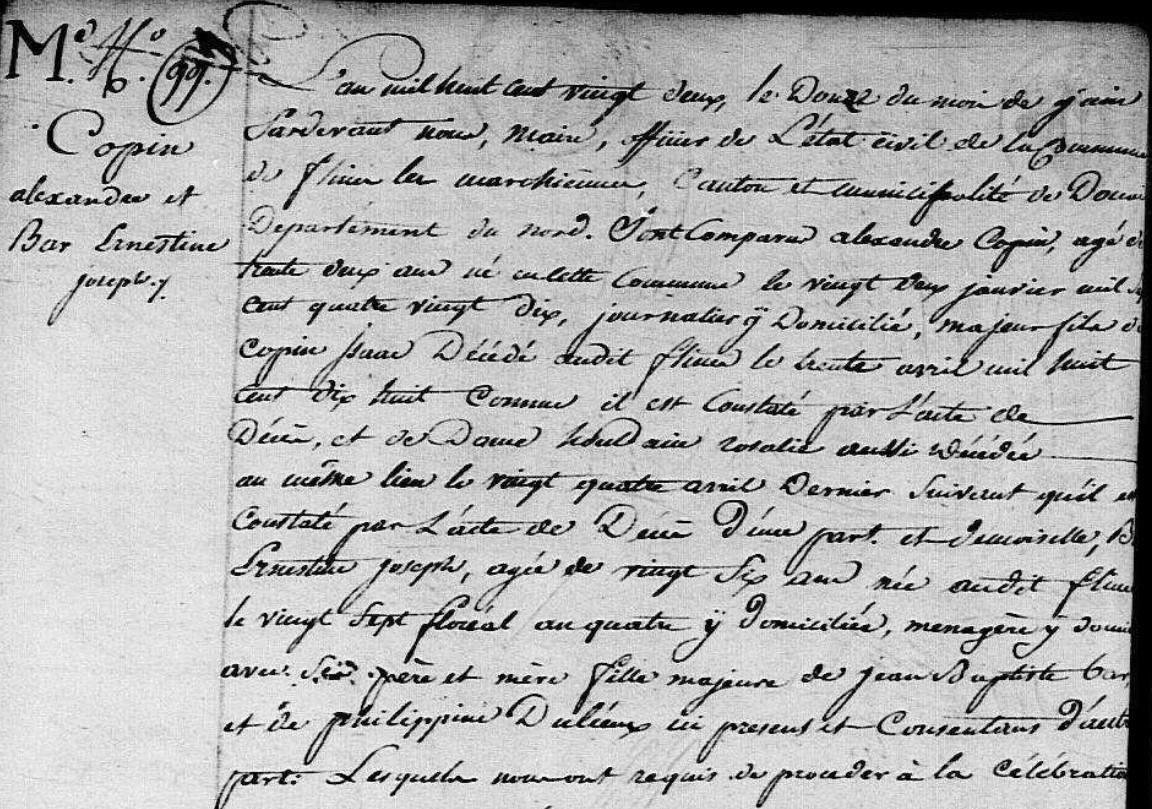 Me No
6. 99.
Copin
alexandre et
Bar Ernestine
joseph.
L'an mil huit cent vingt deux, le Douze du mois de juin
Pardevant nous, Maire, officier de L'état civil de la Commune
de flines les marchiennes, Canton et municipalité de Douai
Département du nord. Sont Comparu alexandre Copin, agé de
trente deux ans né en cette Commune le vingt deux janvier mil sept
cent quatre vingt dix, journalier ÿ Domicilié, majeur fils de
copin isaac Décédé audit flines le trente avril mil huit
cent dix huit Comme il est Constaté par L'acte de
Décès, et de Dame houdain rosalie aussi Décédée
au même lieu le vingt quatre avril Dernier Suivant qu'il est
Constaté par L'acte de Décès D'une part. et Demoiselle, B
Ernestine joseph, agée de vingt Six ans née audit flines
le vingt Sept floréal an quatre ÿ Domiciliée, menagère y domi
avec Ses père et mère fille majeure de jean Baptiste bar,
et de philippine Dulieux ici present et Consentans D'autre
part. Lesquels nous ont requis de proceder à la Célébration